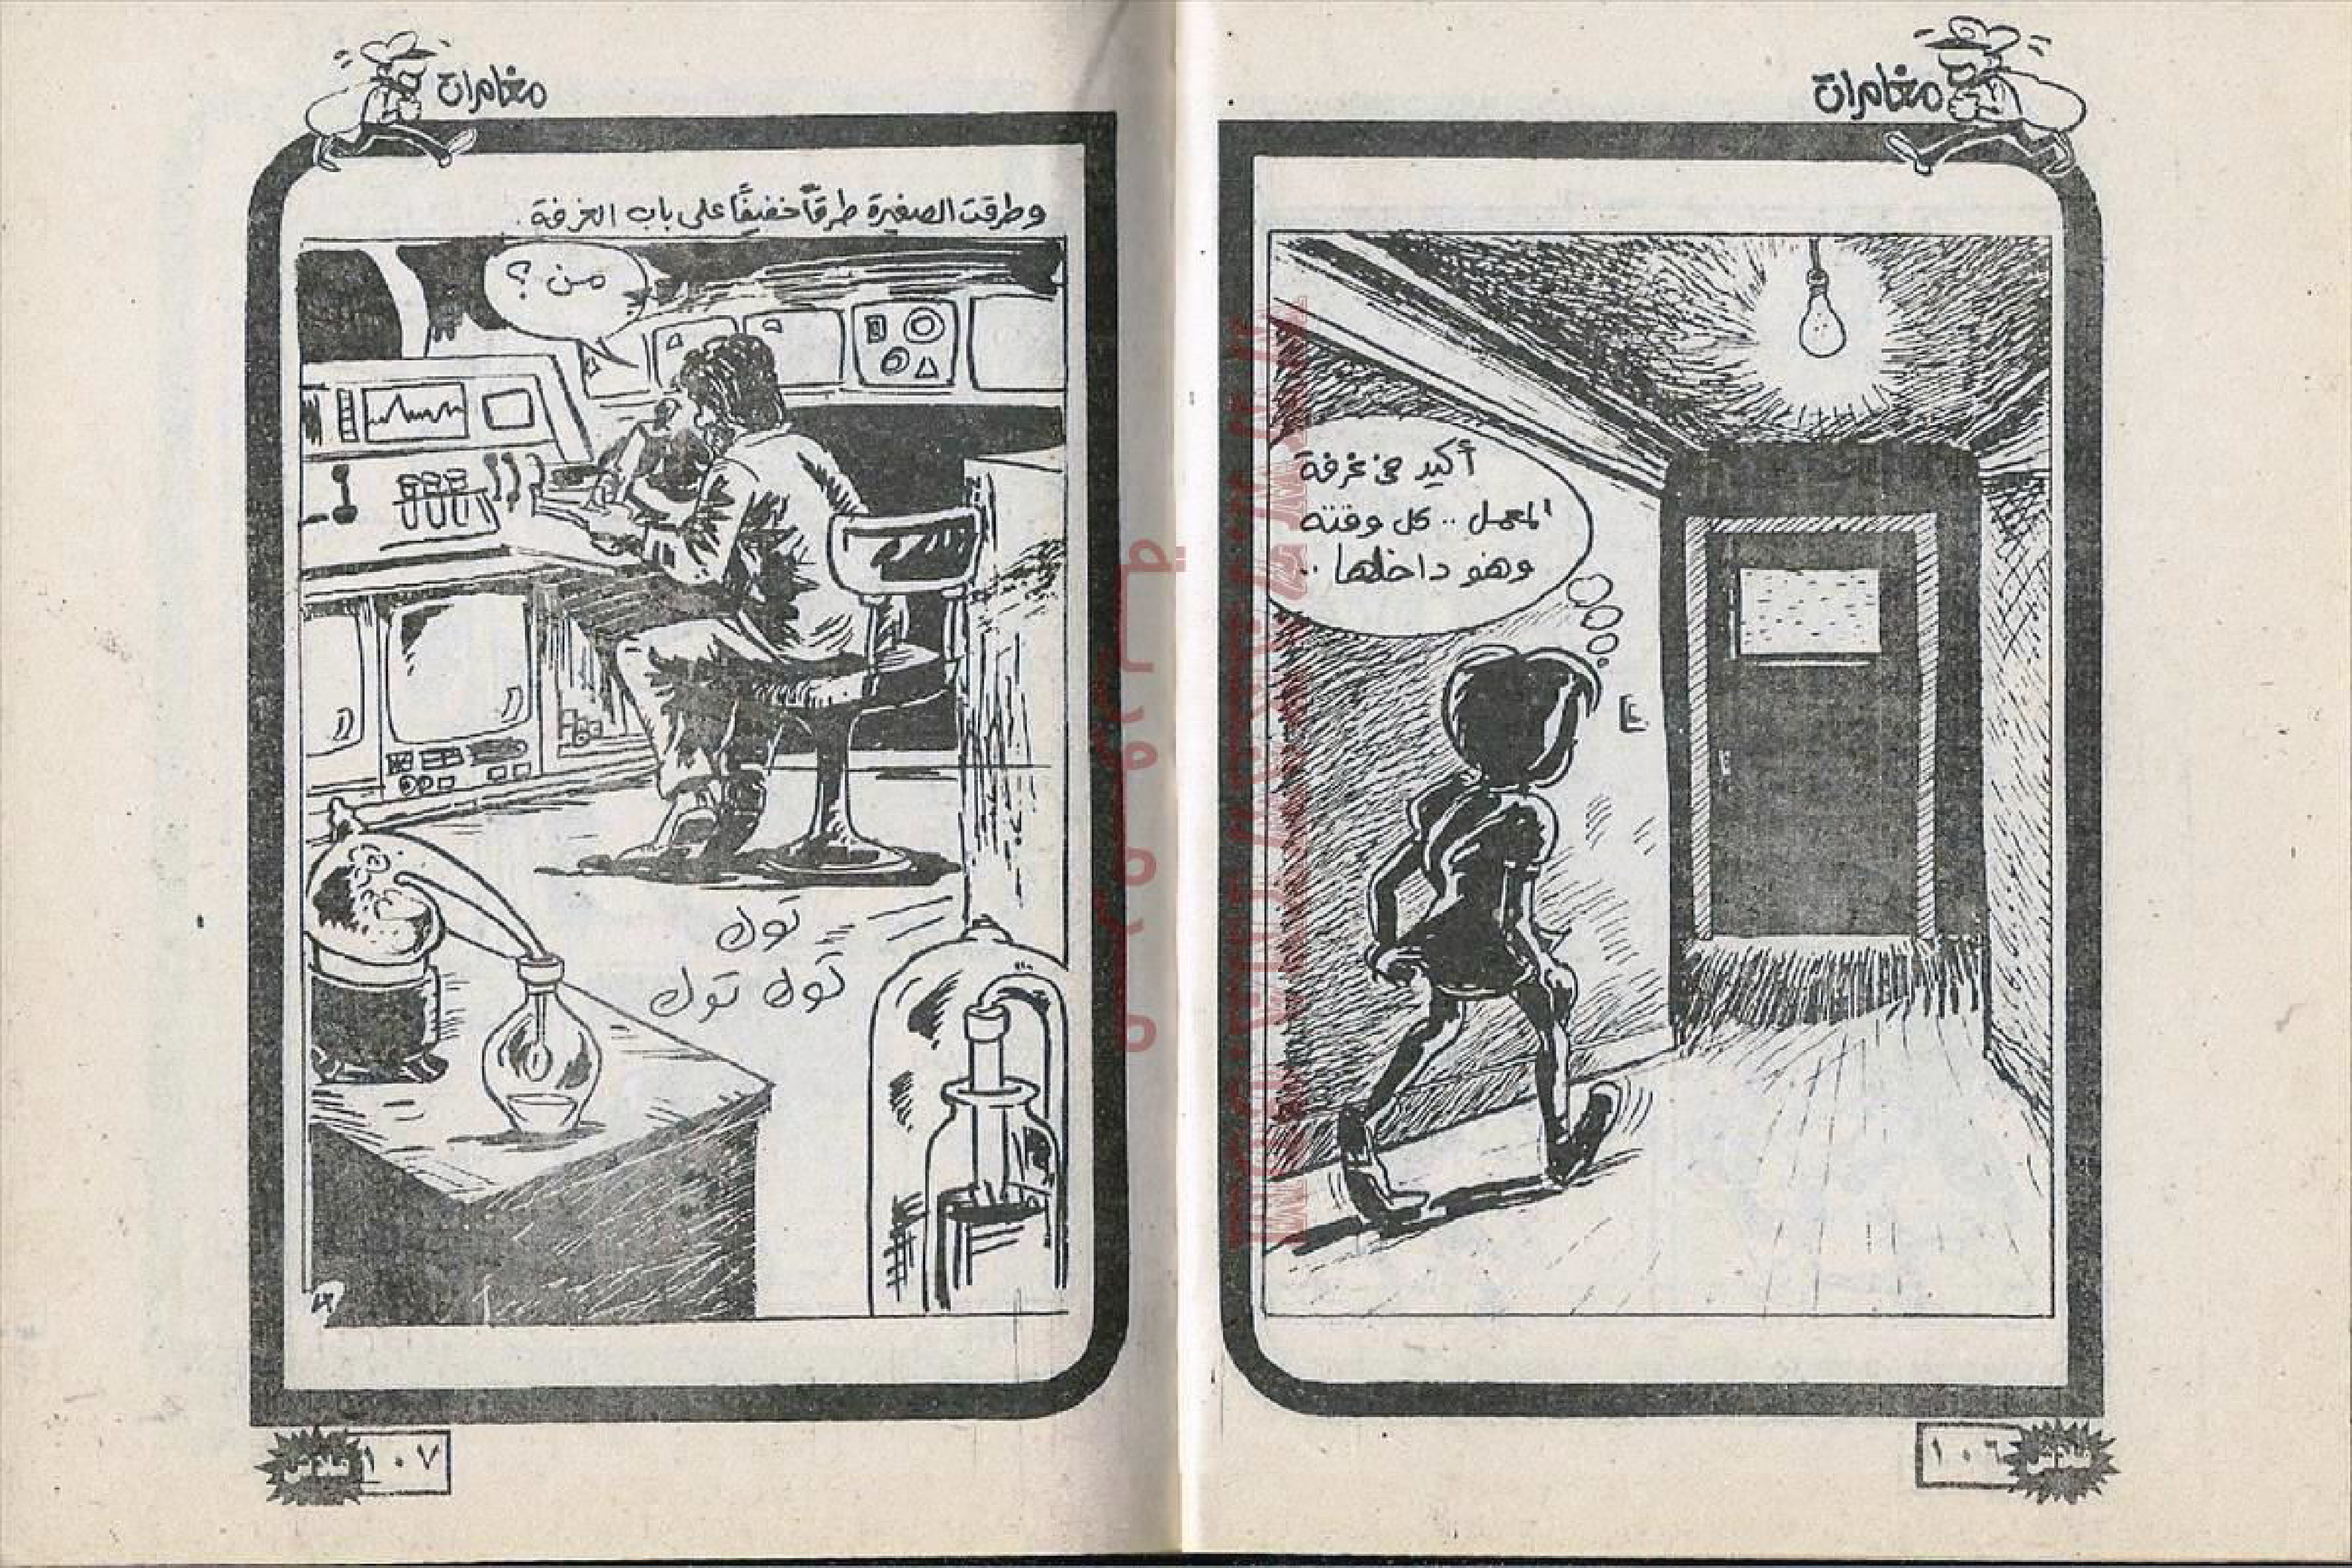 مغامرات
أكيد فى غرفة
المعمل .. كل وقته
وهو داخلها ..
١٠٦
مغامرات
وطرقت الصغيرة طرقاً خفيفاً على باب الغرفة .
من ؟
توك
توك توك
١٠٧